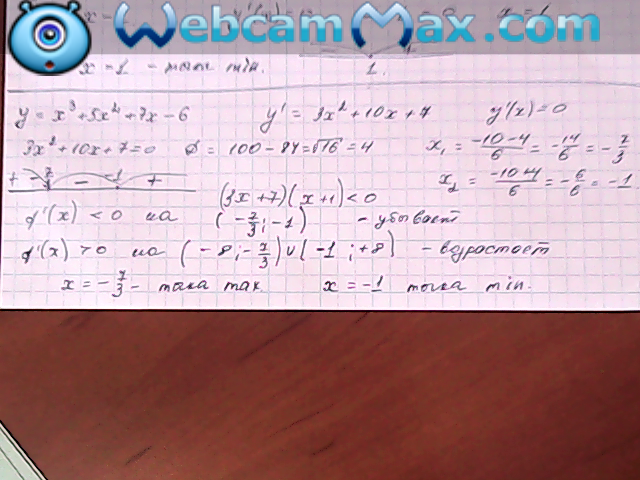 WebcamMax.com
x = 1 - точка min.
1
y = x³ + 5x² + 7x - 6 y' = 3x² + 10x + 7 y'(x) = 0
3x² + 10x + 7 = 0 D = 100 - 84 = √16 = 4 x₁ = -10-4/6 = -14/6 = -7/3
+ -7/3 - -1 + x₂ = -10+4/6 = -6/6 = -1
(3x + 7)(x + 1) < 0
y'(x) < 0 на (-7/3; -1) - убывает
y'(x) > 0 на (-8; -7/3) ∪ (-1; +8) - возрастает
x = -7/3 - точка max x = -1 точка min.